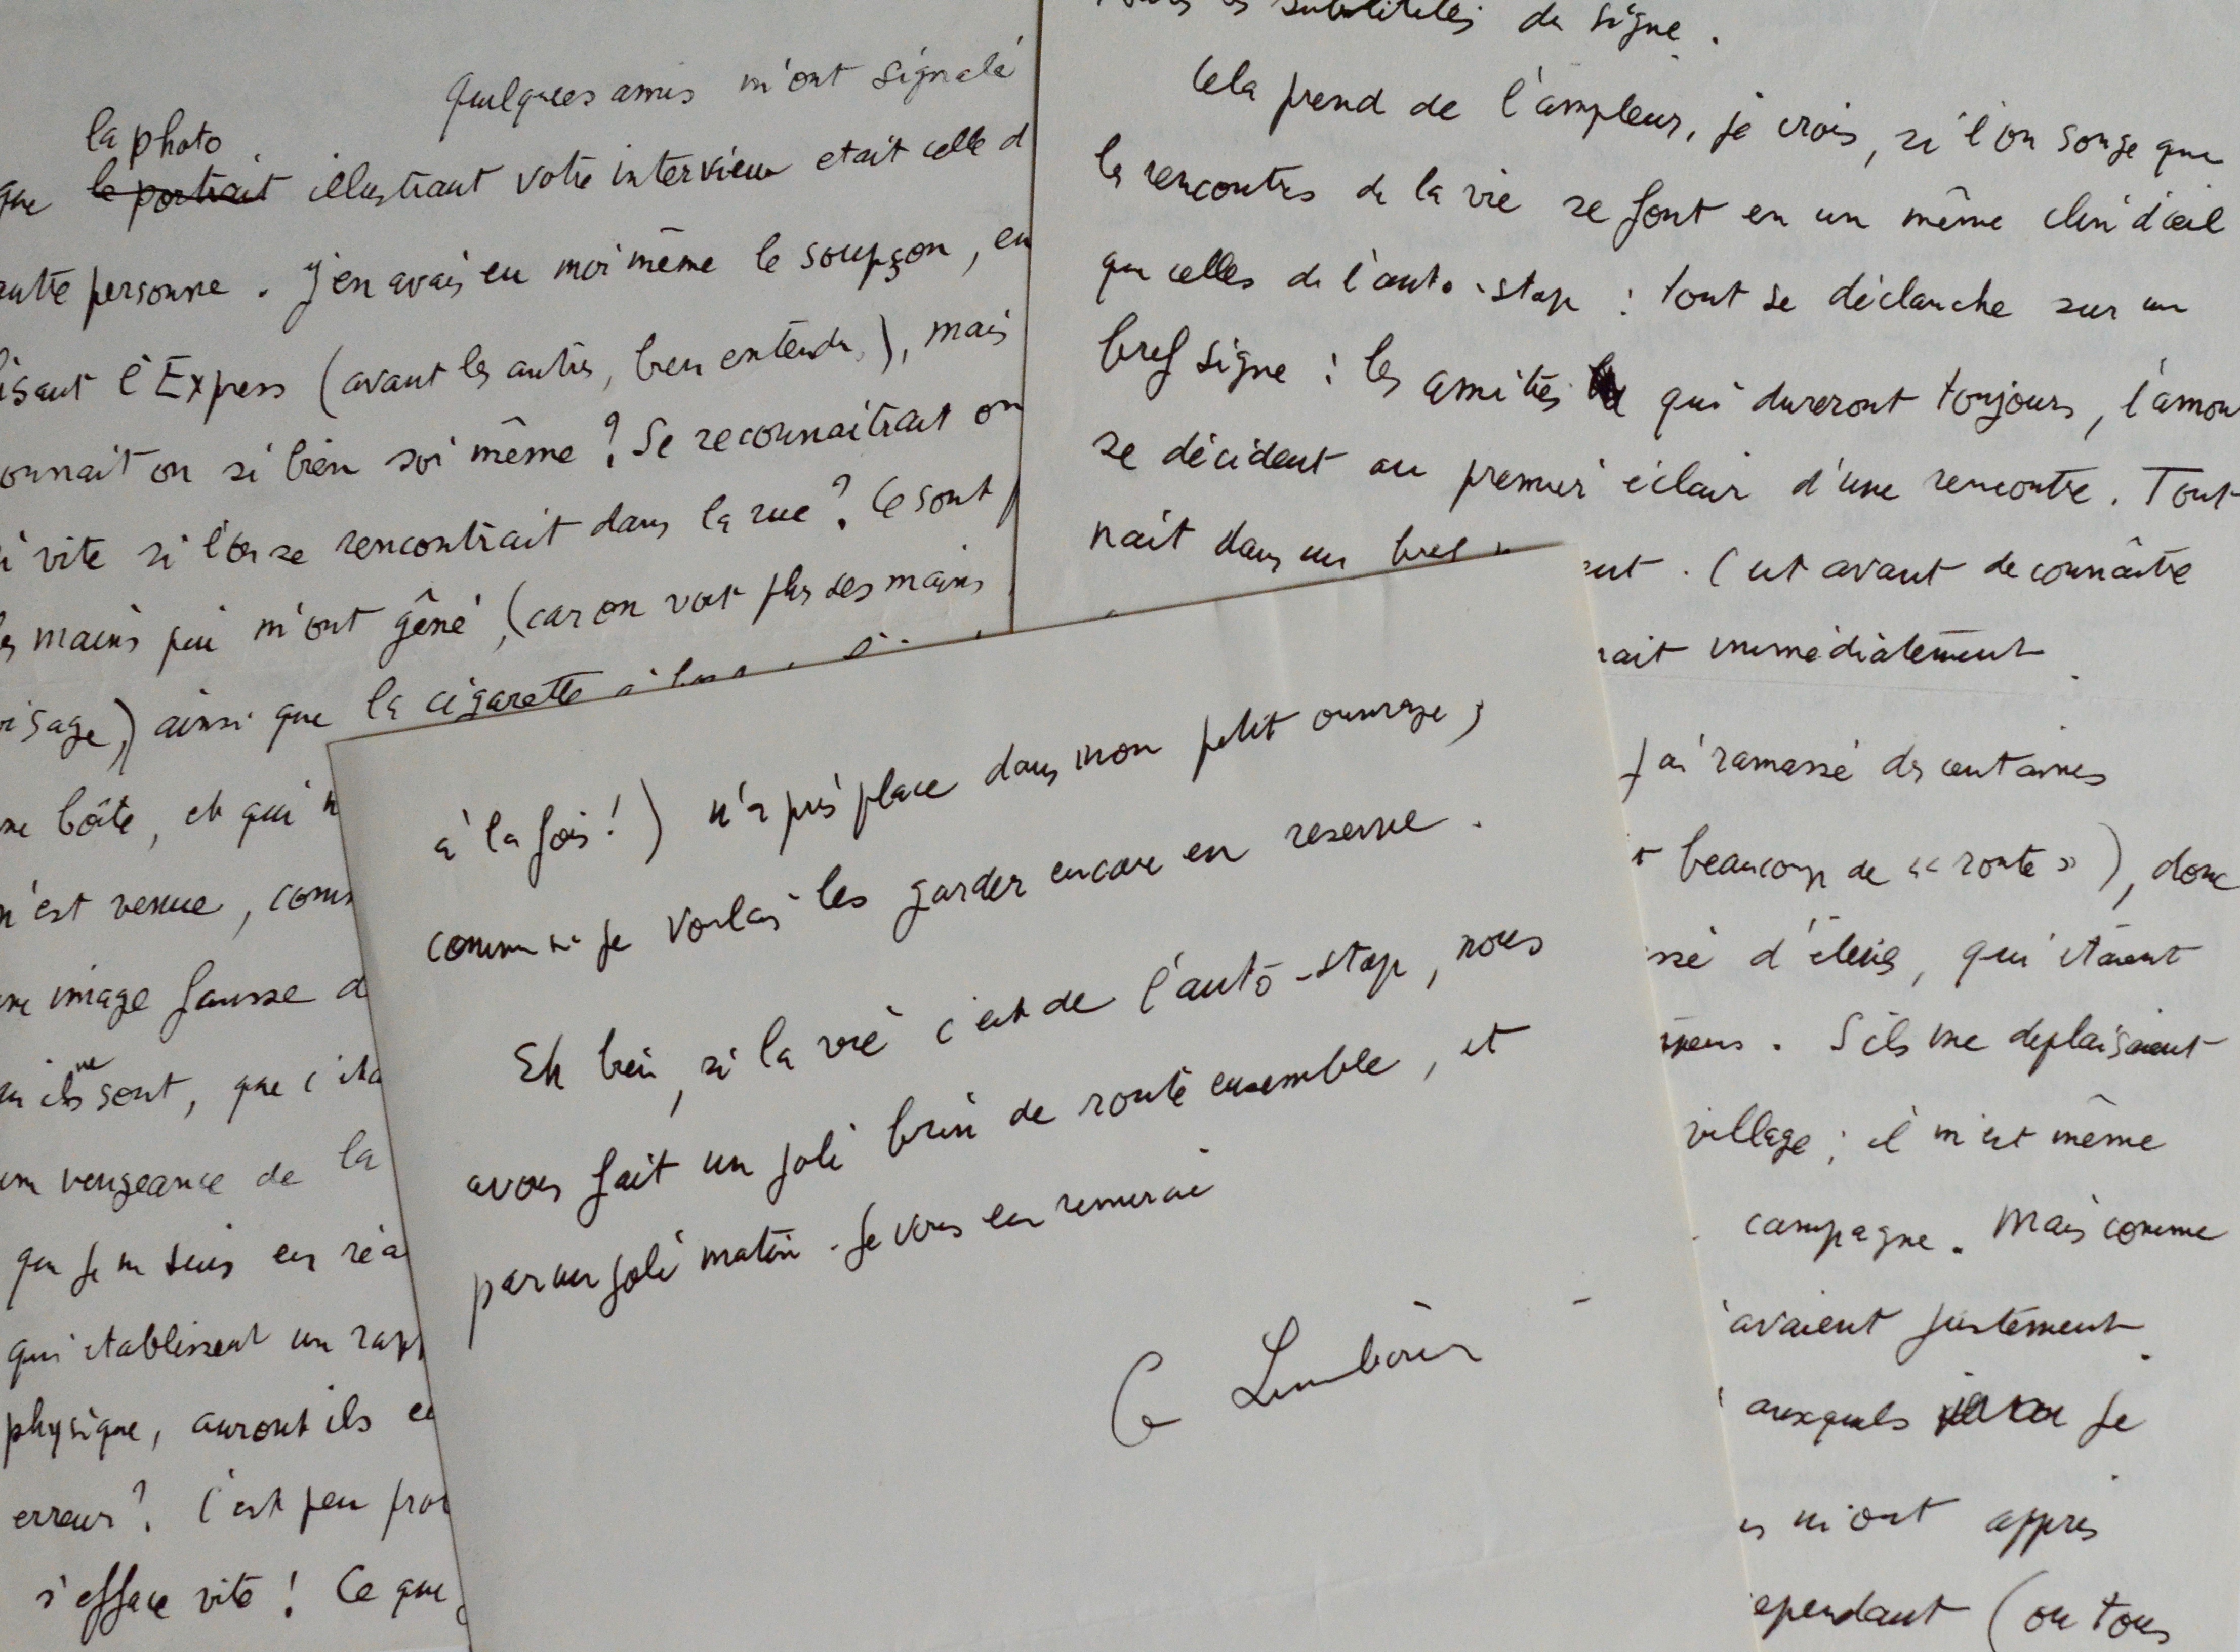 la photo
Quelques amis m'ont signalé
que le portrait illustrant votre interview etait celle d
autre personne. J'en avais eu moi même le soupçon, en
lisant l'Express (avant les autres, bien entendu,), mais
onnait on si bien soi même ? Se reconnaitrait on
si vite si l'on se rencontrait dans la rue ? Ce sont
es mains qui m'ont gêné, (car on voit plus les mains
visage,) ainsi que la cigarette
ne boîte, et qui
n'est venue, comm
ne image fausse d
ils ne sont, que c'éta
une vengeance de la
que je ne suis en réa
qui établissent un rapp
physique, auront ils
erreur ? C'est peu pro
s'efface vite ! Ce que
subtilités du signe.
Cela prend de l'ampleur, je crois, si l'on songe que
les rencontres de la vie se font en un même clin d'œil
que celles de l'auto-stop : tout se déclanche sur un
bref signe : les amitiés qui dureront toujours, l'amour
se décident au premier éclair d'une rencontre. Tout
nait dans un bref ent. C'est avant de connaître
nait immédiatement.
J'ai ramassé des centaines
t beaucoup de « route »), donc
ssé d'élèves, qui étaient
S'ils me deplaisaient
village ; il m'est même
campagne. Mais comme
avaient justement
auxquels je
m'ont appris
ependant (ou tous
à la fois !) n'a pris place dans mon petit ouvrage,
comme si je voulais les garder encore en reserve.
Eh bien, si la vie c'est de l'auto-stop, nous
avons fait un joli brin de route ensemble, et
par un joli matin. Je vous en remercie
G Limbour